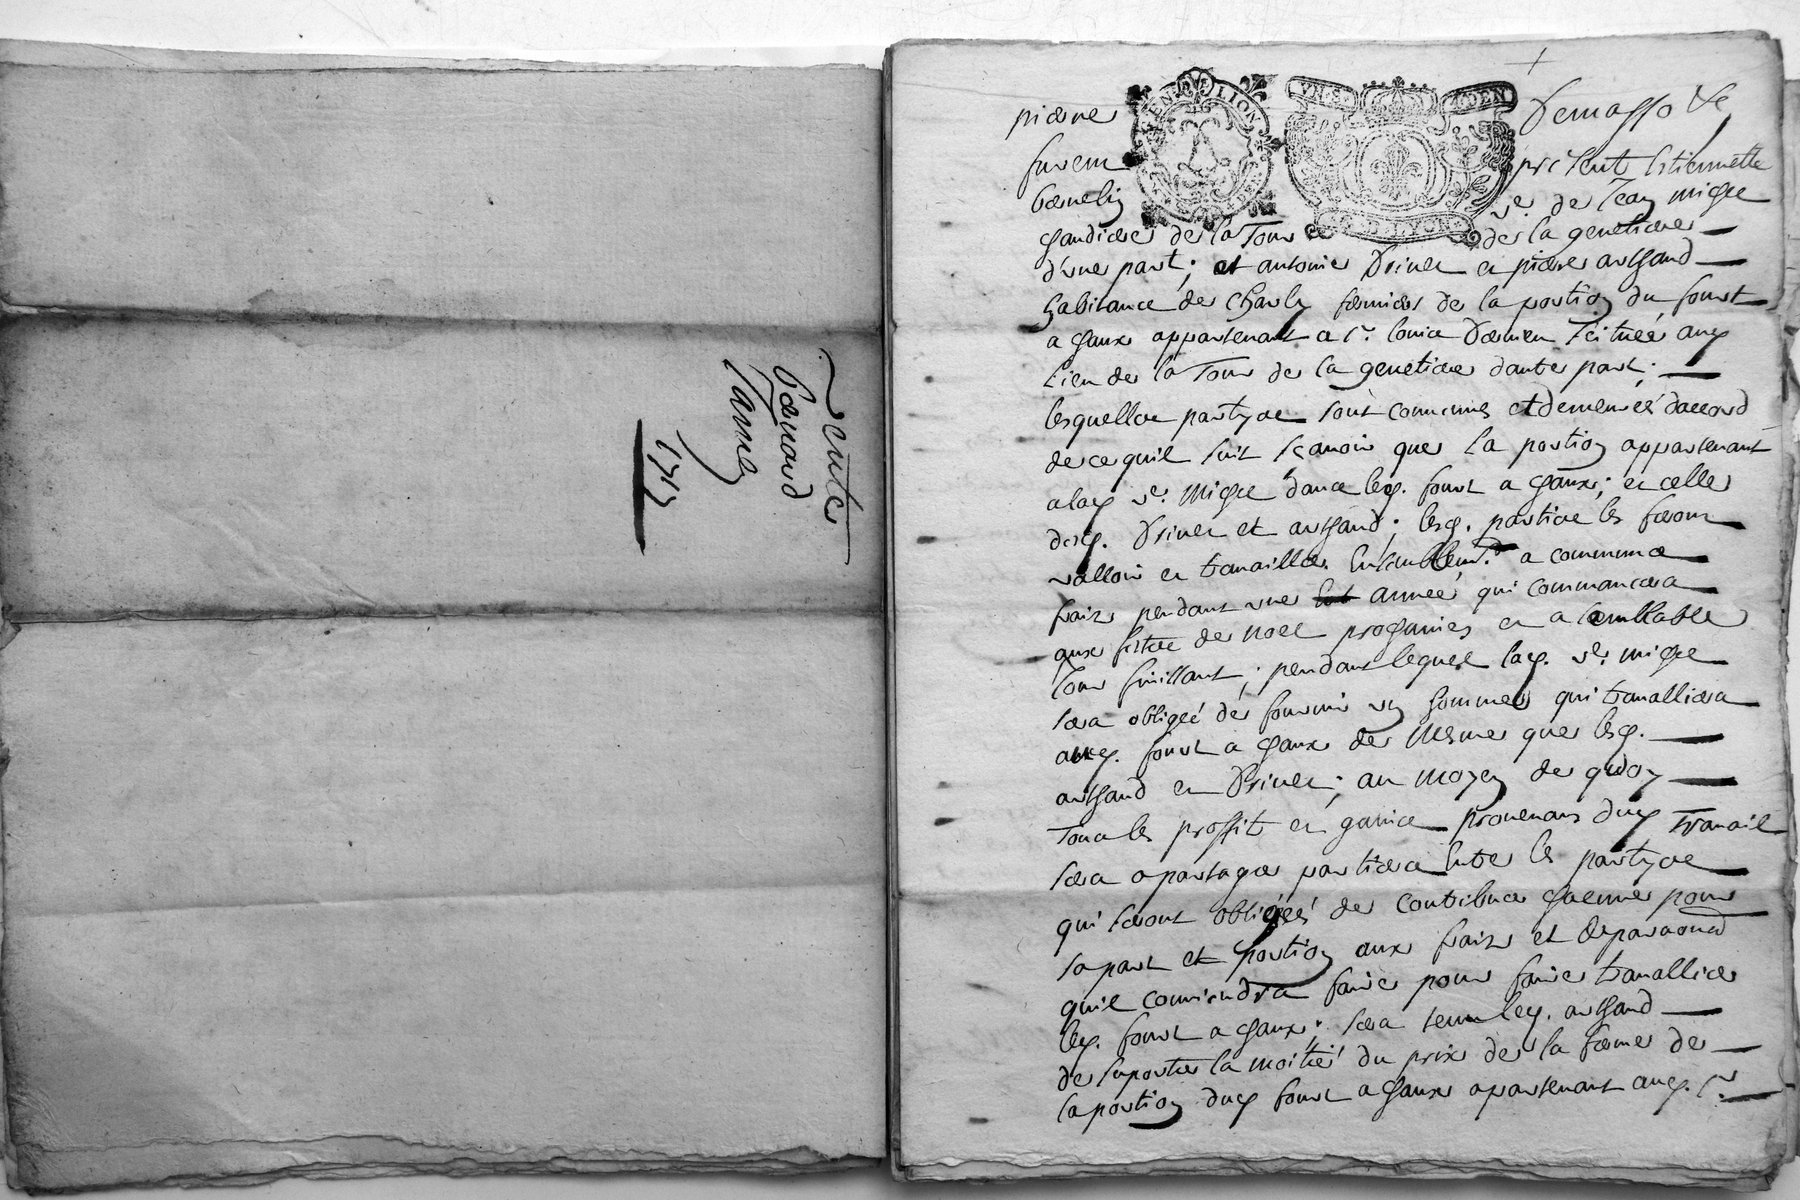 Vente
Bernard
Jamen
1717
GEN. LION
VN. S. MOIEN
G. D. LYON
pierre Demasso &c
furent present Estiennette
bernelin ve. de Jean miche
chandier de la Tour de la genetiere
d'une part; et antoine Drivet et pierre arthaud
habitans de Charly fermiers de la portion du fourt
a chaux appartenant a sr. louis Vernien scituée aux
lieu de la Tour de la genetiere d'autre part;
lesquelles partyes sont convenues et demeurés d'accord
de ce quil suit sçavoir que la portion appartenant
a lad. ve. Miche dans led. fourt a chaux; et celle
desd. Drivet et arthaud; lesd. parties les feront
valloir et travailler Ensemblemt. a communs
frais pendant une année qui commancera
aux festes de noel prochaines et a semblable
Jour finissant; pendant lequel lad. ve. miche
sera obligée de fournir un homme qui travalliera
aud. fourt a chaux de Mesme que lesd.
arthaud et Drivet; au moyen de quoy
Tous les proffit et gains provenans dud. Travail
sera a partager par tiers Entre les partyes
qui seront obligées de contribuer chacune pour
sa part et portion aux frais et
quil conviendra faire pour faire travallier
led. fourt a chaux; sera tenu led. arthaud
de suporter la moitié du prix de la ferme de
la portion dud. fourt a chaux apartenant aud. sr.